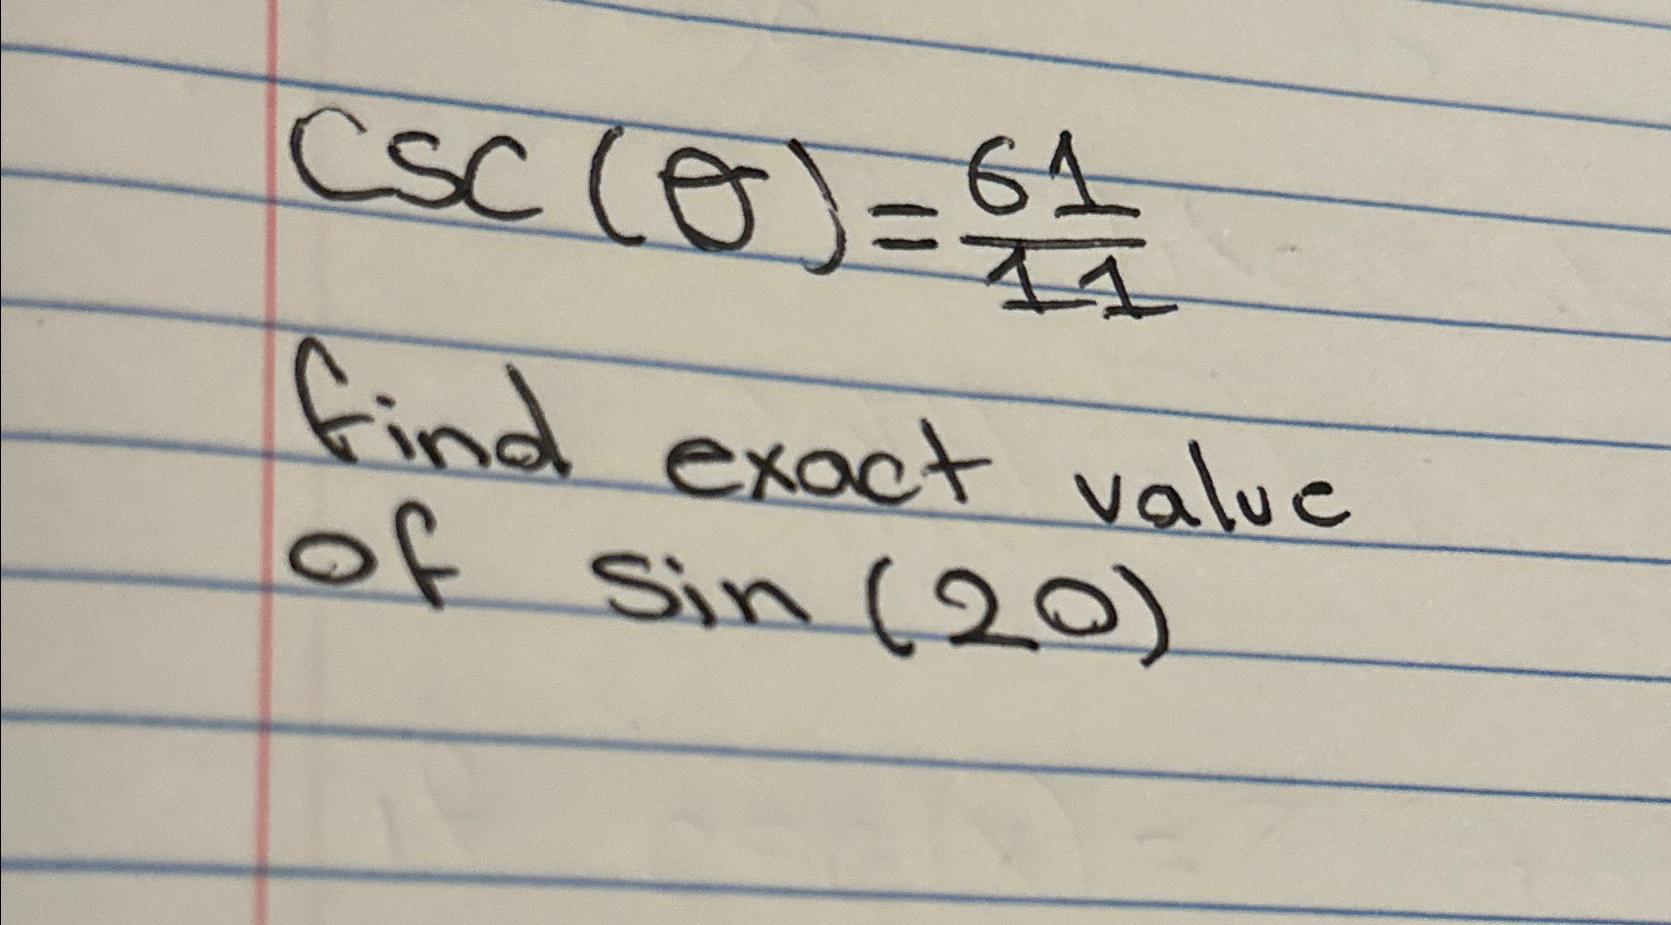 csc(θ)=61/11
find exact value
of sin(20)